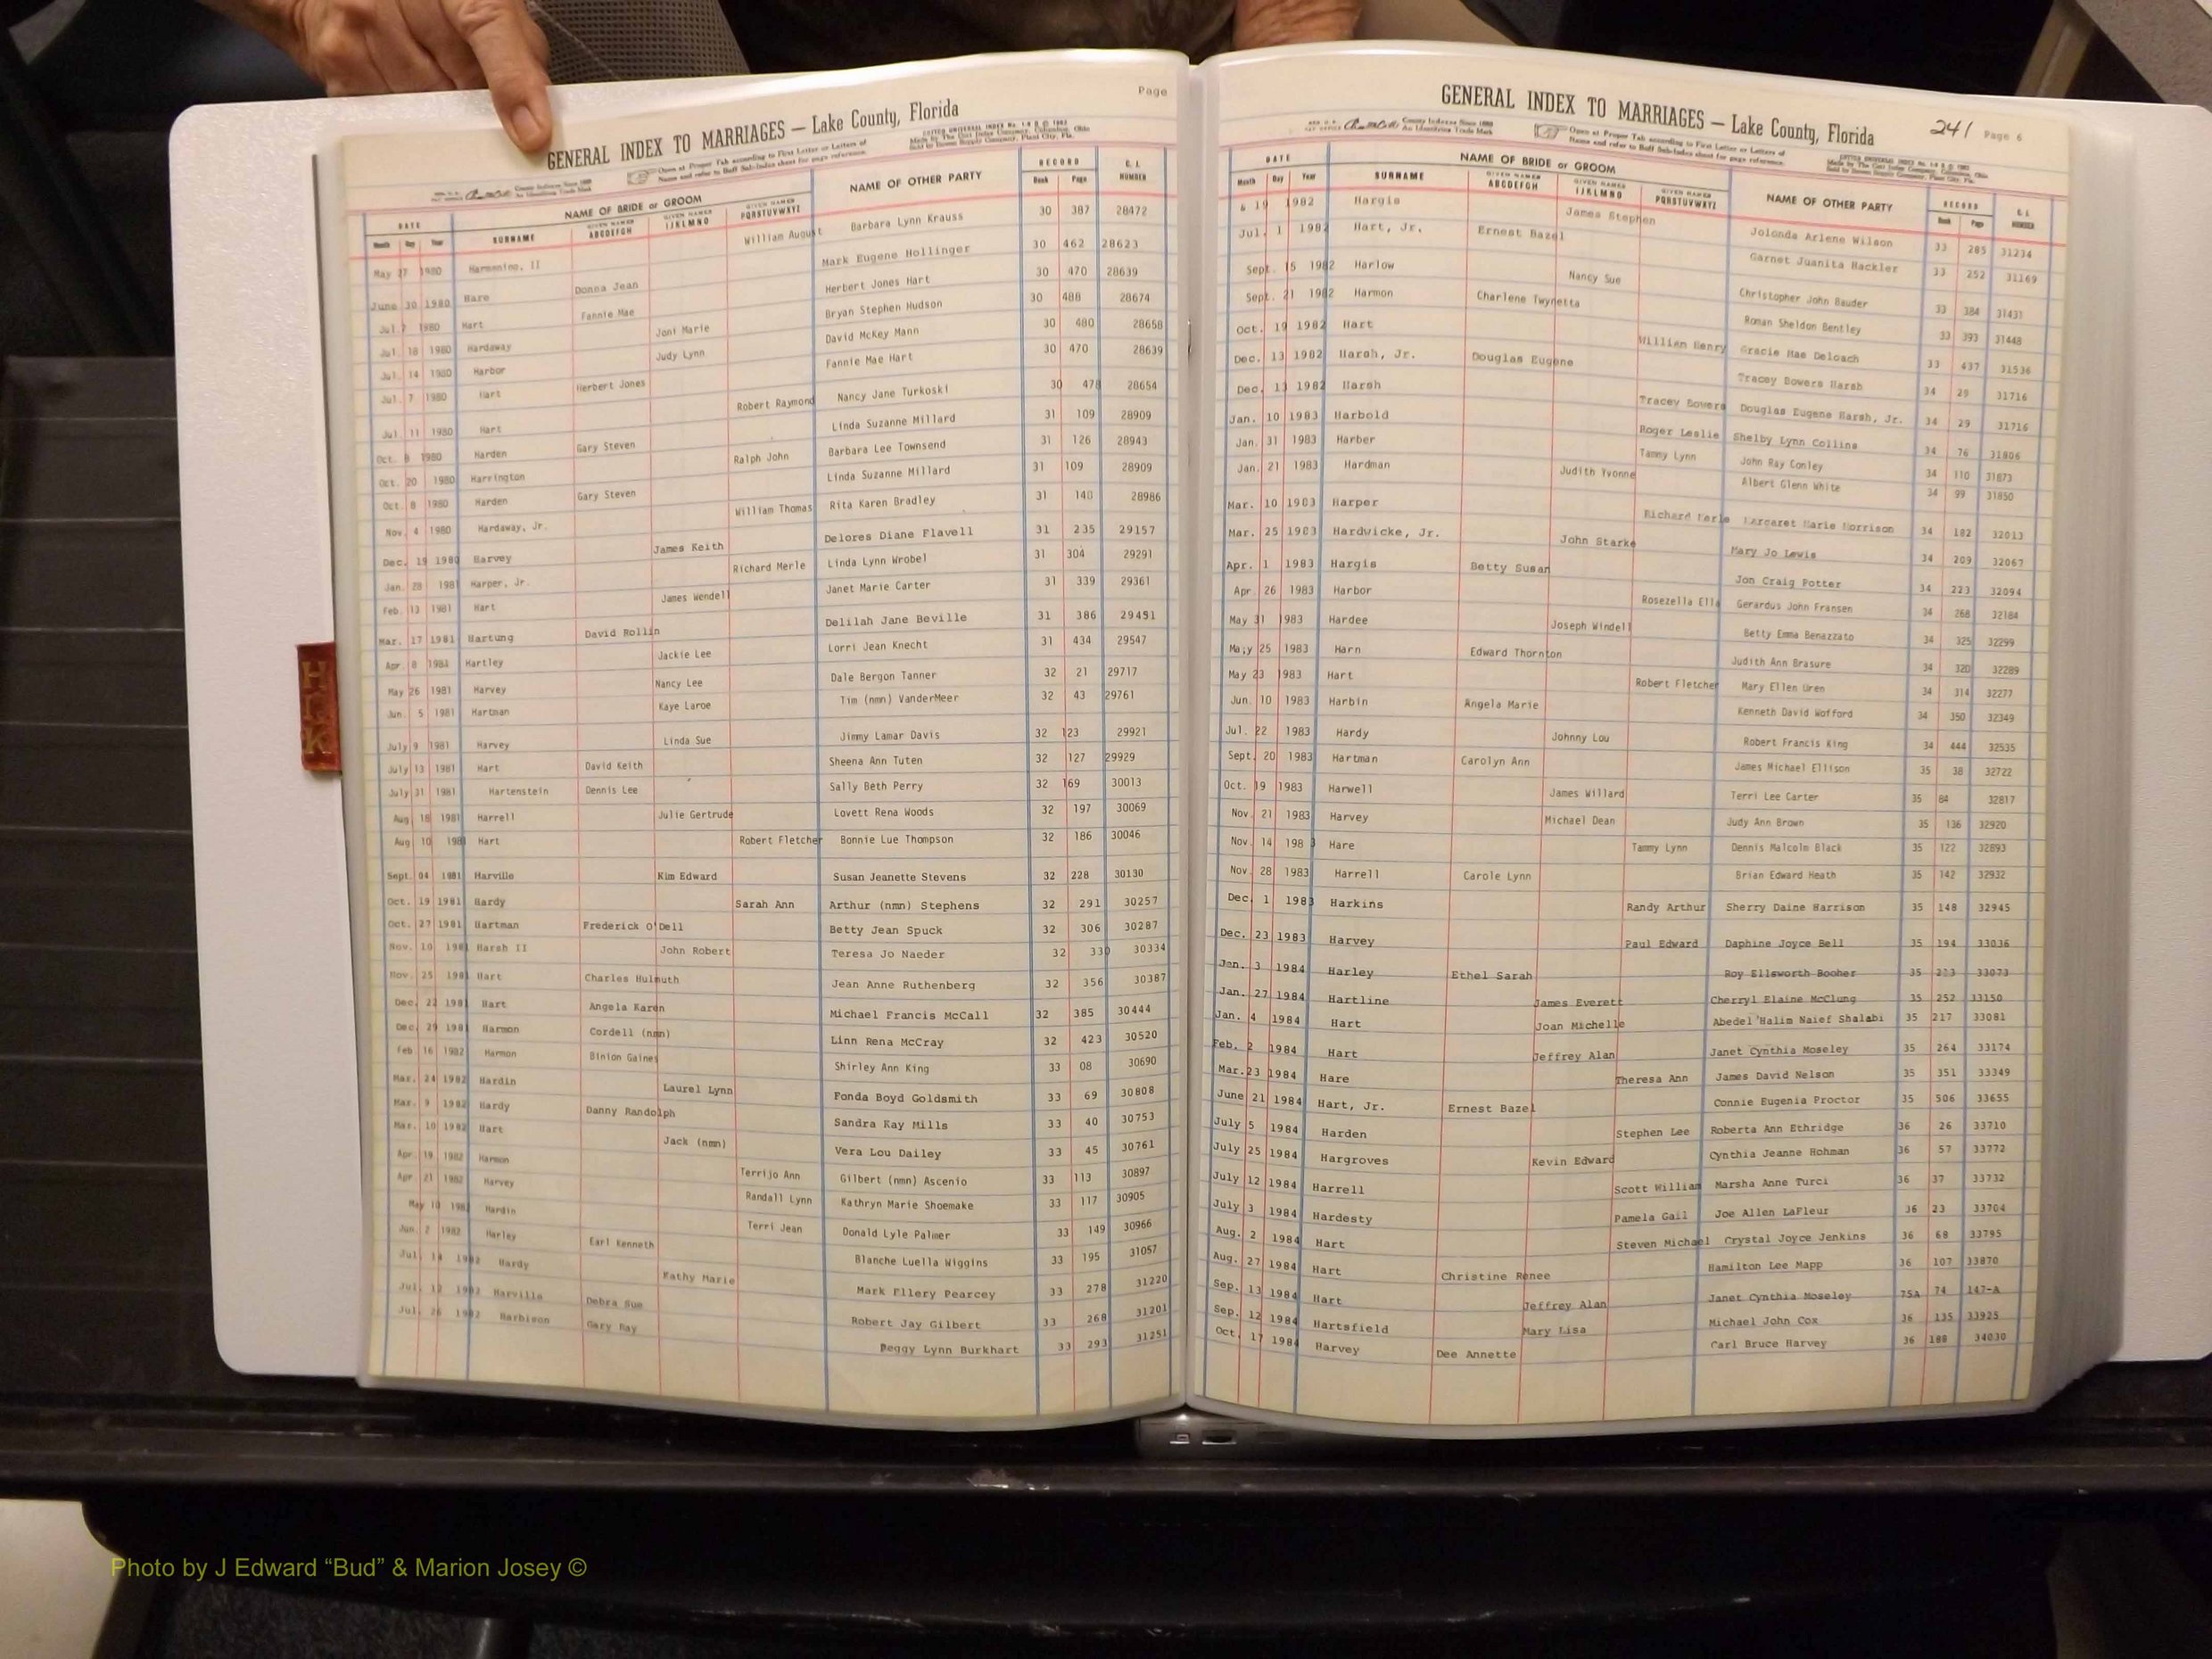 Page
GENERAL INDEX TO MARRIAGES — Lake County, Florida
County Indexes Since 1888
An Identifying Trade Mark
Open at Proper Tab according to First Letter or Letters of
Name and refer to Buff Sub-Index sheet for page reference.
DATE NAME OF BRIDE or GROOM NAME OF OTHER PARTY RECORD C. I.
Month Day Year SURNAME GIVEN NAMES ABCDEFGH GIVEN NAMES IJKLMNO GIVEN NAMES PQRSTUVWXYZ Book Page NUMBER
May 27 1980 Harmenino, II William August Barbara Lynn Krauss 30 387 28472
June 30 1980 Hare Donna Jean Mark Eugene Hollinger 30 462 28623
Jul 7 1980 Hart Fannie Mae Herbert Jones Hart 30 470 28639
Jul. 18 1980 Hardaway Joni Marie Bryan Stephen Hudson 30 488 28674
Jul. 14 1980 Harbor Judy Lynn David McKey Mann 30 480 28658
Jul. 7 1980 Hart Herbert Jones Fannie Mae Hart 30 470 28639
Jul. 11 1980 Hart Robert Raymond Nancy Jane Turkoski 30 478 28654
Oct. 8 1980 Harden Gary Steven Linda Suzanne Millard 31 109 28909
Oct. 20 1980 Harrington Ralph John Barbara Lee Townsend 31 126 28943
Oct. 8 1980 Harden Gary Steven Linda Suzanne Millard 31 109 28909
Nov. 4 1980 Hardaway, Jr. William Thomas Rita Karen Bradley 31 148 28986
Dec. 19 1980 Harvey James Keith Delores Diane Flavell 31 235 29157
Jan. 28 1981 Harper, Jr. Richard Merle Linda Lynn Wrobel 31 304 29291
Feb. 13 1981 Hart James Wendell Janet Marie Carter 31 339 29361
Mar. 17 1981 Hartung David Rollin Delilah Jane Beville 31 386 29451
Apr. 8 1981 Hartley Jackie Lee Lorri Jean Knecht 31 434 29547
May 26 1981 Harvey Nancy Lee Dale Bergon Tanner 32 21 29717
Jun. 5 1981 Hartman Kaye Laroe Tim (nmn) VanderMeer 32 43 29761
July 9 1981 Harvey Linda Sue Jimmy Lamar Davis 32 123 29921
July 13 1981 Hart David Keith Sheena Ann Tuten 32 127 29929
July 31 1981 Hartenstein Dennis Lee Sally Beth Perry 32 169 30013
Aug 18 1981 Harrell Julie Gertrude Lovett Rena Woods 32 197 30069
Aug 10 1981 Hart Robert Fletcher Bonnie Lue Thompson 32 186 30046
Sept. 04 1981 Harville Kim Edward Susan Jeanette Stevens 32 228 30130
Oct. 19 1981 Hardy Sarah Ann Arthur (nmn) Stephens 32 291 30257
Oct. 27 1981 Hartman Frederick O'Dell Betty Jean Spuck 32 306 30287
Nov. 10 1981 Harsh II John Robert Teresa Jo Naeder 32 330 30334
Nov. 25 1981 Hart Charles Hulmuth Jean Anne Ruthenberg 32 356 30387
Dec. 22 1981 Hart Angela Karen Michael Francis McCall 32 385 30444
Dec. 29 1981 Harmon Cordell (nmn) Linn Rena McCray 32 423 30520
Feb 16 1982 Harmon Binion Gaines Shirley Ann King 33 08 30690
Mar. 24 1982 Hardin Laurel Lynn Fonda Boyd Goldsmith 33 69 30808
Mar. 9 1982 Hardy Danny Randolph Sandra Kay Mills 33 40 30753
Mar. 10 1982 Hart Jack (nmn) Vera Lou Dailey 33 45 30761
Apr. 19 1982 Harmon Terrijo Ann Gilbert (nmn) Ascenio 33 113 30897
Apr. 21 1982 Harvey Randall Lynn Kathryn Marie Shoemake 33 117 30905
May 10 1982 Hardin Terri Jean Donald Lyle Palmer 33 149 30966
Jun. 2 1982 Harley Earl Kenneth Blanche Luella Wiggins 33 195 31057
Jul. 14 1982 Hardy Kathy Marie Mark Ellery Pearcey 33 278 31220
Jul. 12 1982 Harville Debra Sue Robert Jay Gilbert 33 268 31201
Jul. 26 1982 Harbison Gary Ray Peggy Lynn Burkhart 33 293 31251
GENERAL INDEX TO MARRIAGES — Lake County, Florida
241 Page 6
County Indexes Since 1888
An Identifying Trade Mark
Open at Proper Tab according to First Letter or Letters of
Name and refer to Buff Sub-Index sheet for page reference.
DATE NAME OF BRIDE or GROOM NAME OF OTHER PARTY RECORD C. I.
Month Day Year SURNAME GIVEN NAMES ABCDEFGH GIVEN NAMES IJKLMNO GIVEN NAMES PQRSTUVWXYZ Book Page NUMBER
19 1982 Hargis James Stephen Jolonda Arlene Wilson 33 285 31234
Jul. 1 1982 Hart, Jr. Ernest Bazel Garnet Juanita Hackler 33 252 31169
Sept. 15 1982 Harlow Nancy Sue Christopher John Bauder 33 384 31431
Sept. 21 1982 Harmon Charlene Twynetta Roman Sheldon Bentley 33 393 31448
Oct. 19 1982 Hart William Henry Gracie Mae Deloach 33 437 31536
Dec. 13 1982 Harsh, Jr. Douglas Eugene Tracey Bowers Harsh 34 29 31716
Dec. 13 1982 Harsh Tracey Bowers Douglas Eugene Harsh, Jr. 34 29 31716
Jan. 10 1983 Harbold Roger Leslie Shelby Lynn Collins 34 76 31806
Jan. 31 1983 Harber Tammy Lynn John Ray Conley 34 110 31873
Jan. 21 1983 Hardman Judith Yvonne Albert Glenn White 34 99 31850
Mar. 10 1983 Harper Richard Merle Margaret Marie Morrison 34 182 32013
Mar. 25 1983 Hardwicke, Jr. John Starke Mary Jo Lewis 34 209 32067
Apr. 1 1983 Hargis Betty Susan Jon Craig Potter 34 223 32094
Apr. 26 1983 Harbor Rosezella Ella Gerardus John Fransen 34 268 32184
May 31 1983 Hardee Joseph Windell Betty Emma Benazzato 34 325 32299
Ma;y 25 1983 Harn Edward Thornton Judith Ann Brasure 34 320 32289
May 23 1983 Hart Robert Fletcher Mary Ellen Uren 34 314 32277
Jun 10 1983 Harbin Angela Marie Kenneth David Wofford 34 350 32349
Jul. 22 1983 Hardy Johnny Lou Robert Francis King 34 444 32535
Sept. 20 1983 Hartman Carolyn Ann James Michael Ellison 35 38 32722
Oct. 19 1983 Harwell James Willard Terri Lee Carter 35 84 32817
Nov. 21 1983 Harvey Michael Dean Judy Ann Brown 35 136 32920
Nov. 14 1983 Hare Tammy Lynn Dennis Malcolm Black 35 122 32893
Nov. 28 1983 Harrell Carole Lynn Brian Edward Heath 35 142 32932
Dec. 1 1983 Harkins Randy Arthur Sherry Daine Harrison 35 148 32945
Dec. 23 1983 Harvey Paul Edward Daphine Joyce Bell 35 194 33036
Jan. 3 1984 Harley Ethel Sarah Roy Ellsworth Booher 35 213 33073
Jan. 27 1984 Hartline James Everett Cherryl Elaine McClung 35 252 33150
Jan. 4 1984 Hart Joan Michelle Abedel'Halim Naief Shalabi 35 217 33081
Feb. 2 1984 Hart Jeffrey Alan Janet Cynthia Moseley 35 264 33174
Mar. 23 1984 Hare Theresa Ann James David Nelson 35 351 33349
June 21 1984 Hart, Jr. Ernest Bazel Connie Eugenia Proctor 35 506 33655
July 5 1984 Harden Stephen Lee Roberta Ann Ethridge 36 26 33710
July 25 1984 Hargroves Kevin Edward Cynthia Jeanne Hohman 36 57 33772
July 12 1984 Harrell Scott William Marsha Anne Turci 36 37 33732
July 3 1984 Hardesty Pamela Gail Joe Allen LaFleur 36 23 33704
Aug. 2 1984 Hart Steven Michael Crystal Joyce Jenkins 36 68 33795
Aug. 27 1984 Hart Christine Renee Hamilton Lee Mapp 36 107 33870
Sep. 13 1984 Hart Jeffrey Alan Janet Cynthia Moseley 75A 74 147-A
Sep. 12 1984 Hartsfield Mary Lisa Michael John Cox 36 135 33925
Oct. 17 1984 Harvey Dee Annette Carl Bruce Harvey 36 188 34030
H
K
Photo by J Edward “Bud” & Marion Josey ©